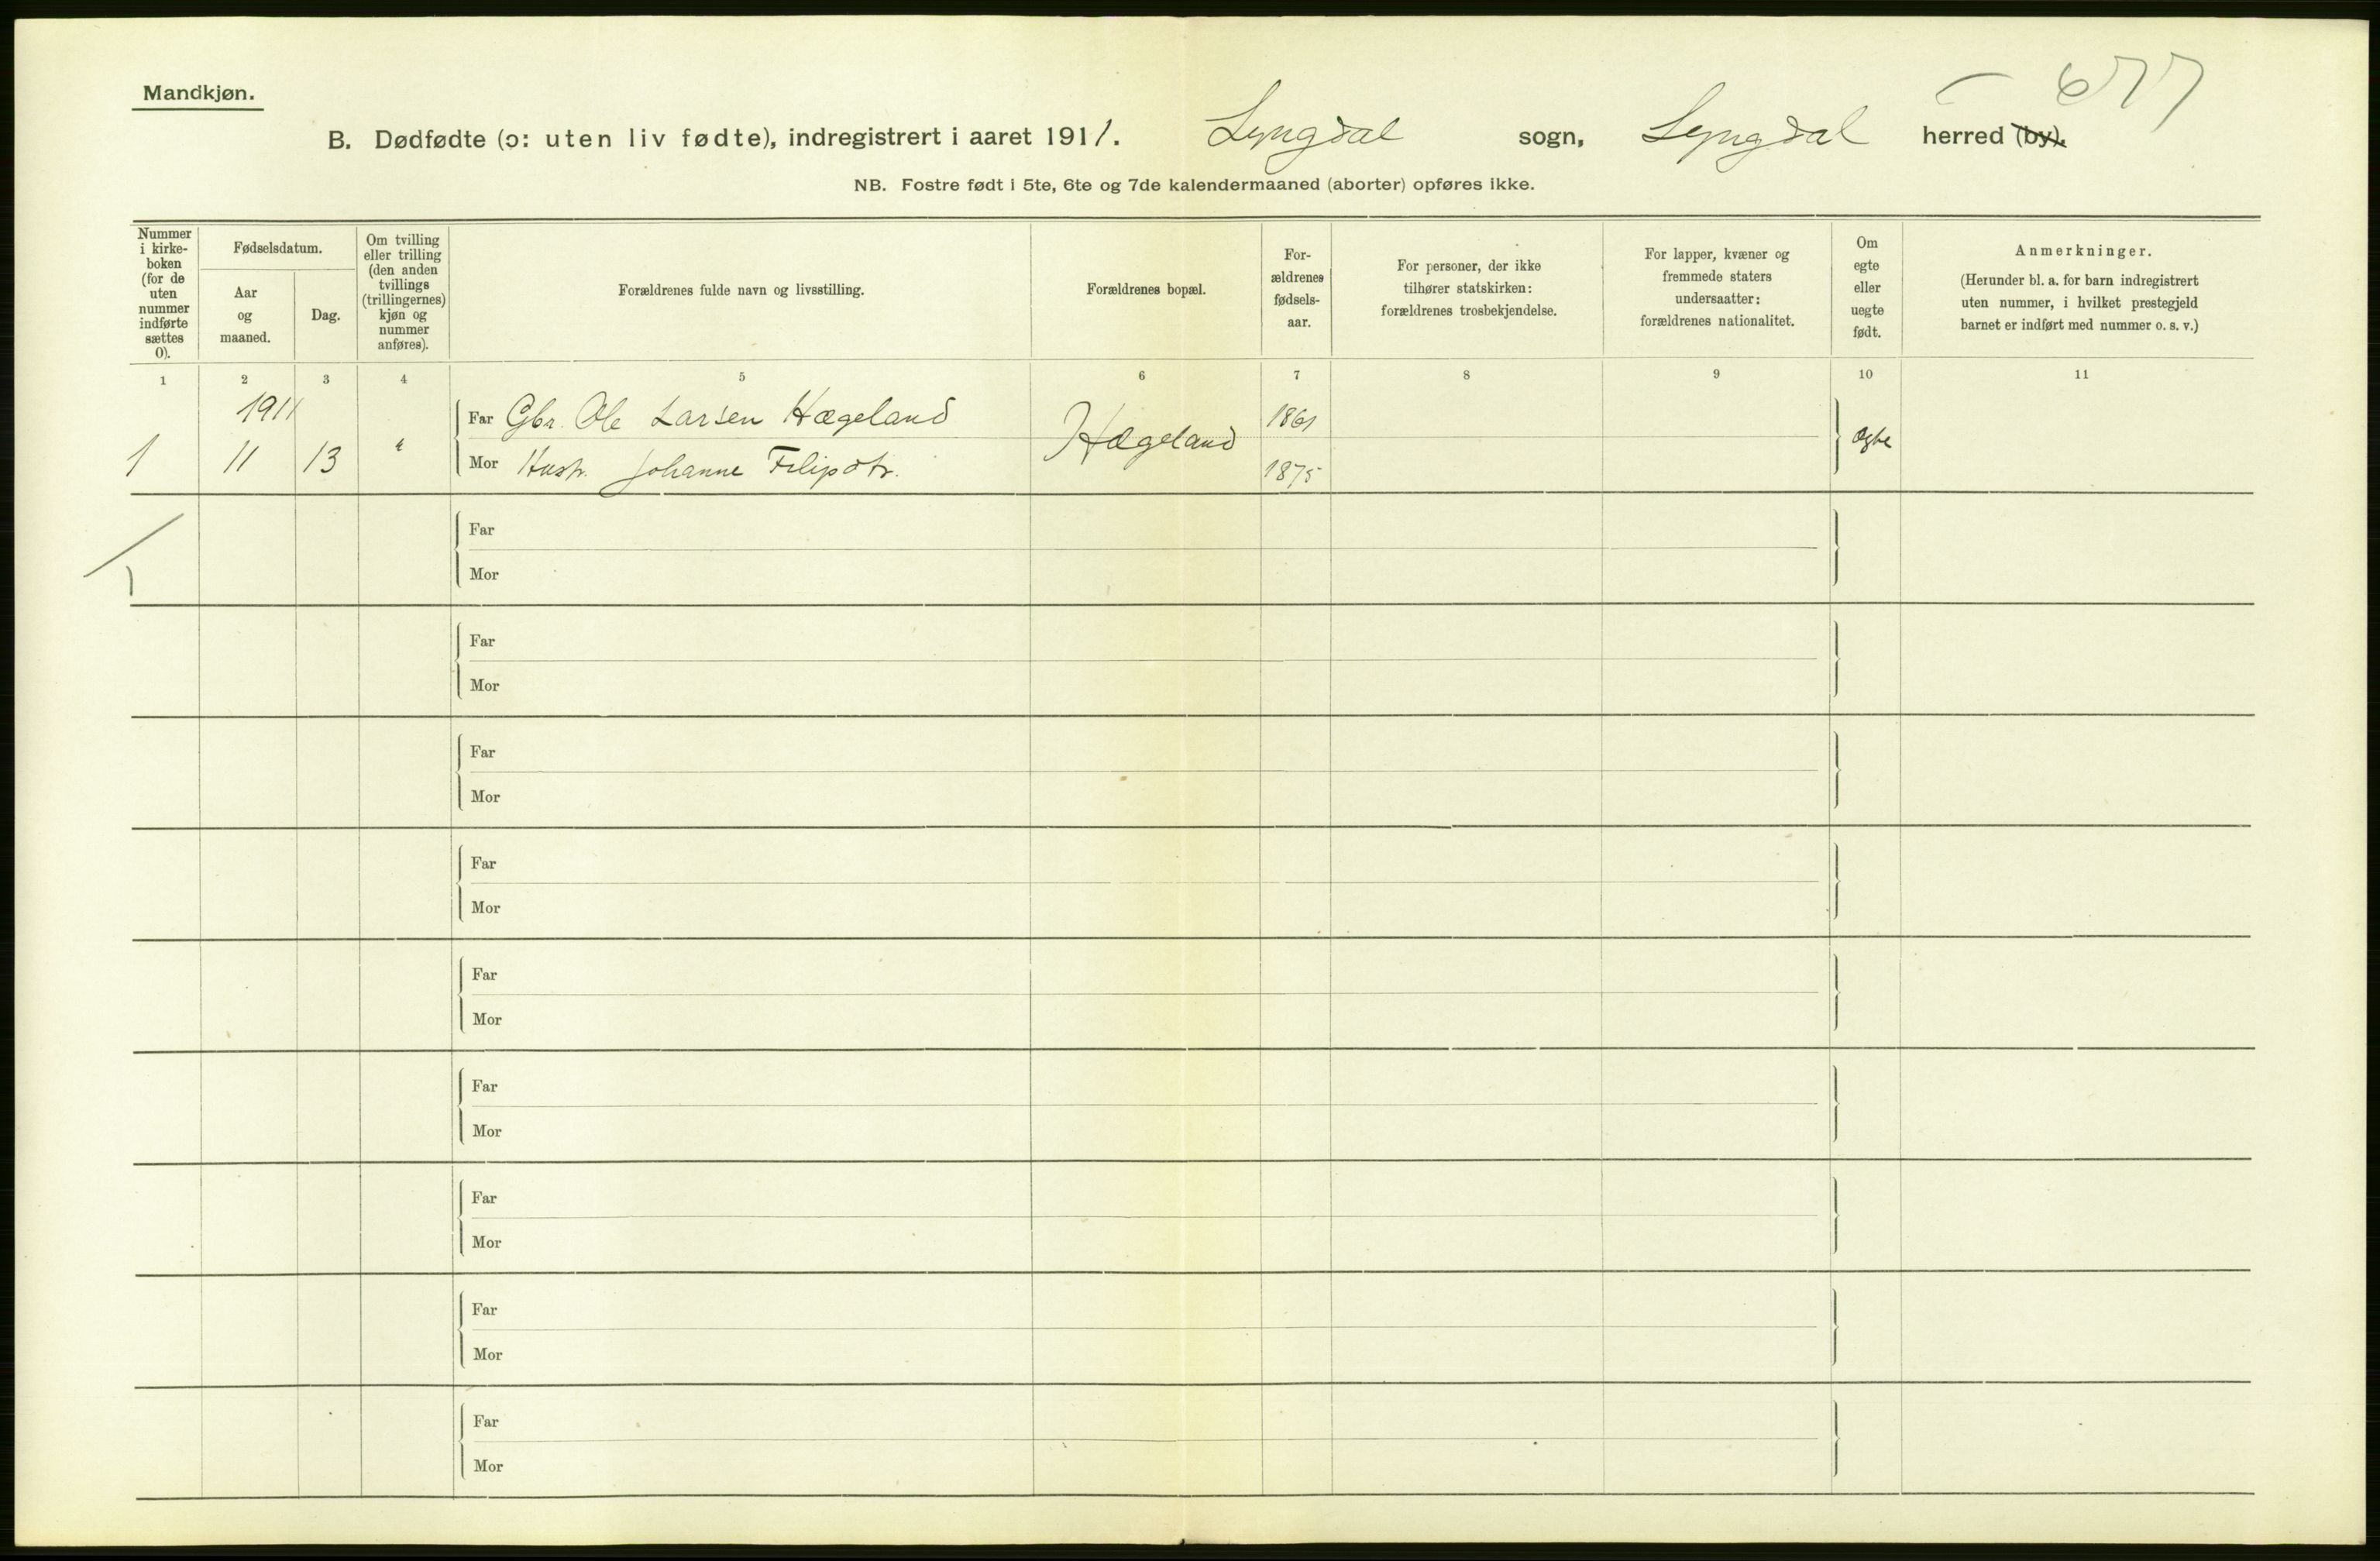 Mandkjøn.
677
B. Dødfødte (ɔ: uten liv fødte), indregistrert i aaret 1911. Lyngdal sogn, Lyngdal herred (by).
NB. Fostre født i 5te, 6te og 7de kalendermaaned (aborter) opføres ikke.
Nummer
i kirke-
boken
(for de
uten
nummer
indførte
sættes
0).
Fødselsdatum.
Aar
og
maaned.
Dag.
Om tvilling
eller trilling
(den anden
tvillings
(trillingernes)
kjøn og
nummer
anføres).
Forældrenes fulde navn og livsstilling.
Forældrenes bopæl.
For-
ældrenes
fødsels-
aar.
For personer, der ikke
tilhører statskirken:
forældrenes trosbekjendelse.
For lapper, kvæner og
fremmede staters
undersaatter:
forældrenes nationalitet.
Om
egte
eller
uegte
født.
Anmerkninger.
(Herunder bl. a. for barn indregistrert
uten nummer, i hvilket prestegjeld
barnet er indført med nummer o. s. v.)
1 2 3 4 5 6 7 8 9 10 11
1911
Far Gbr. Ole Larsen Hægeland 1861
1 11 13 " Hægeland Ægte
Mor Hustr. Johanne Filipsdtr. 1875
Far
1
Mor
Far
Mor
Far
Mor
Far
Mor
Far
Mor
Far
Mor
Far
Mor
Far
Mor
Far
Mor